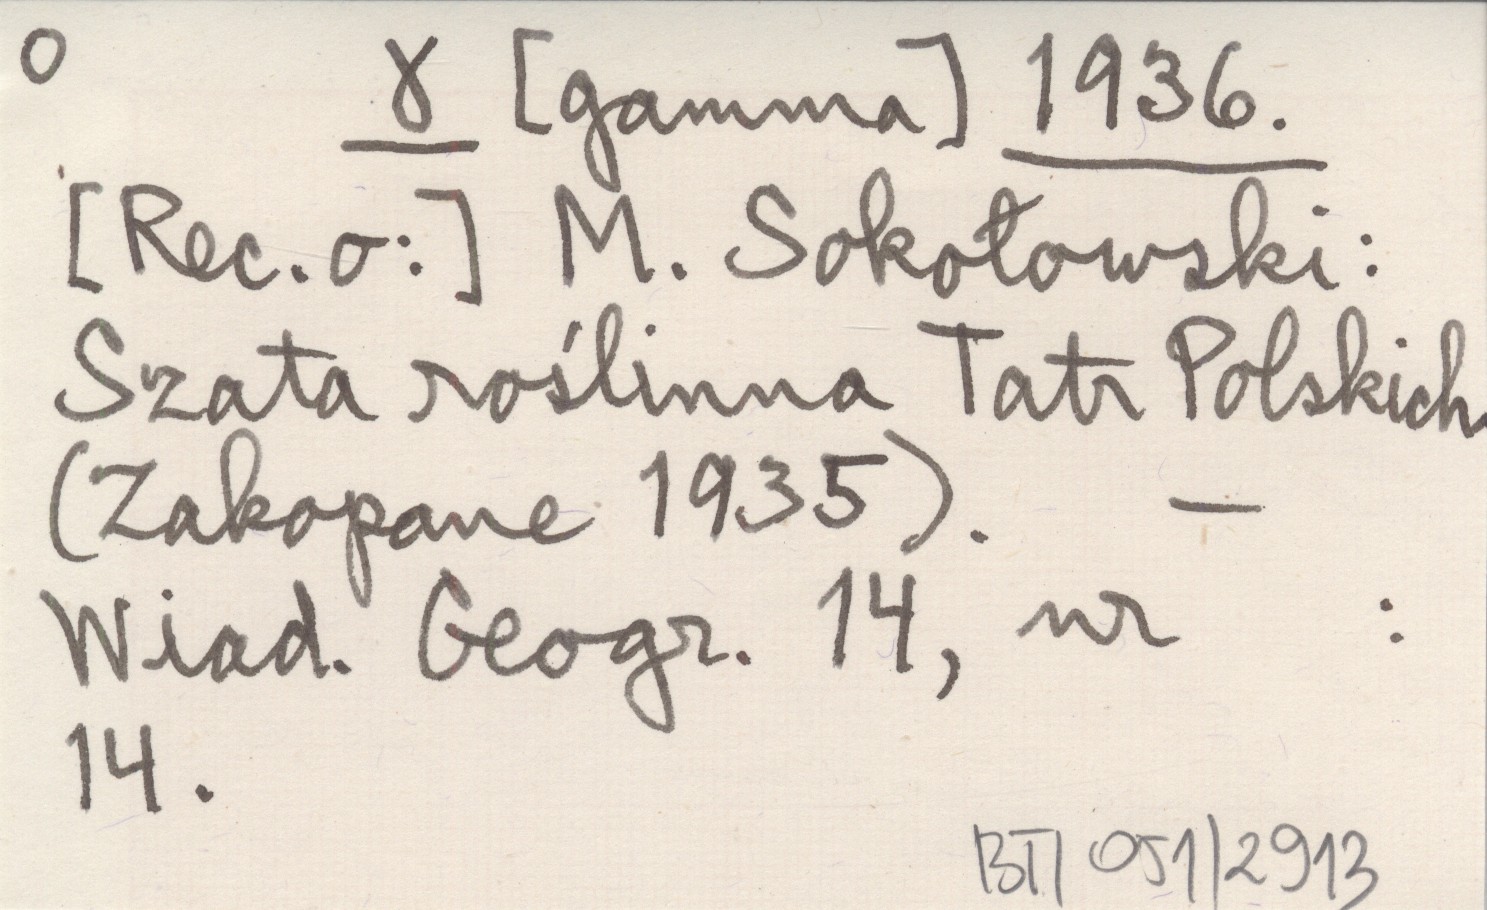 o γ [gamma] 1936.
[Rec. o:] M. Sokołowski:
Szata roślinna Tatr Polskich
(Zakopane 1935). —
Wiad. Geogr. 14, nr :
14.
BT/ 051/2913